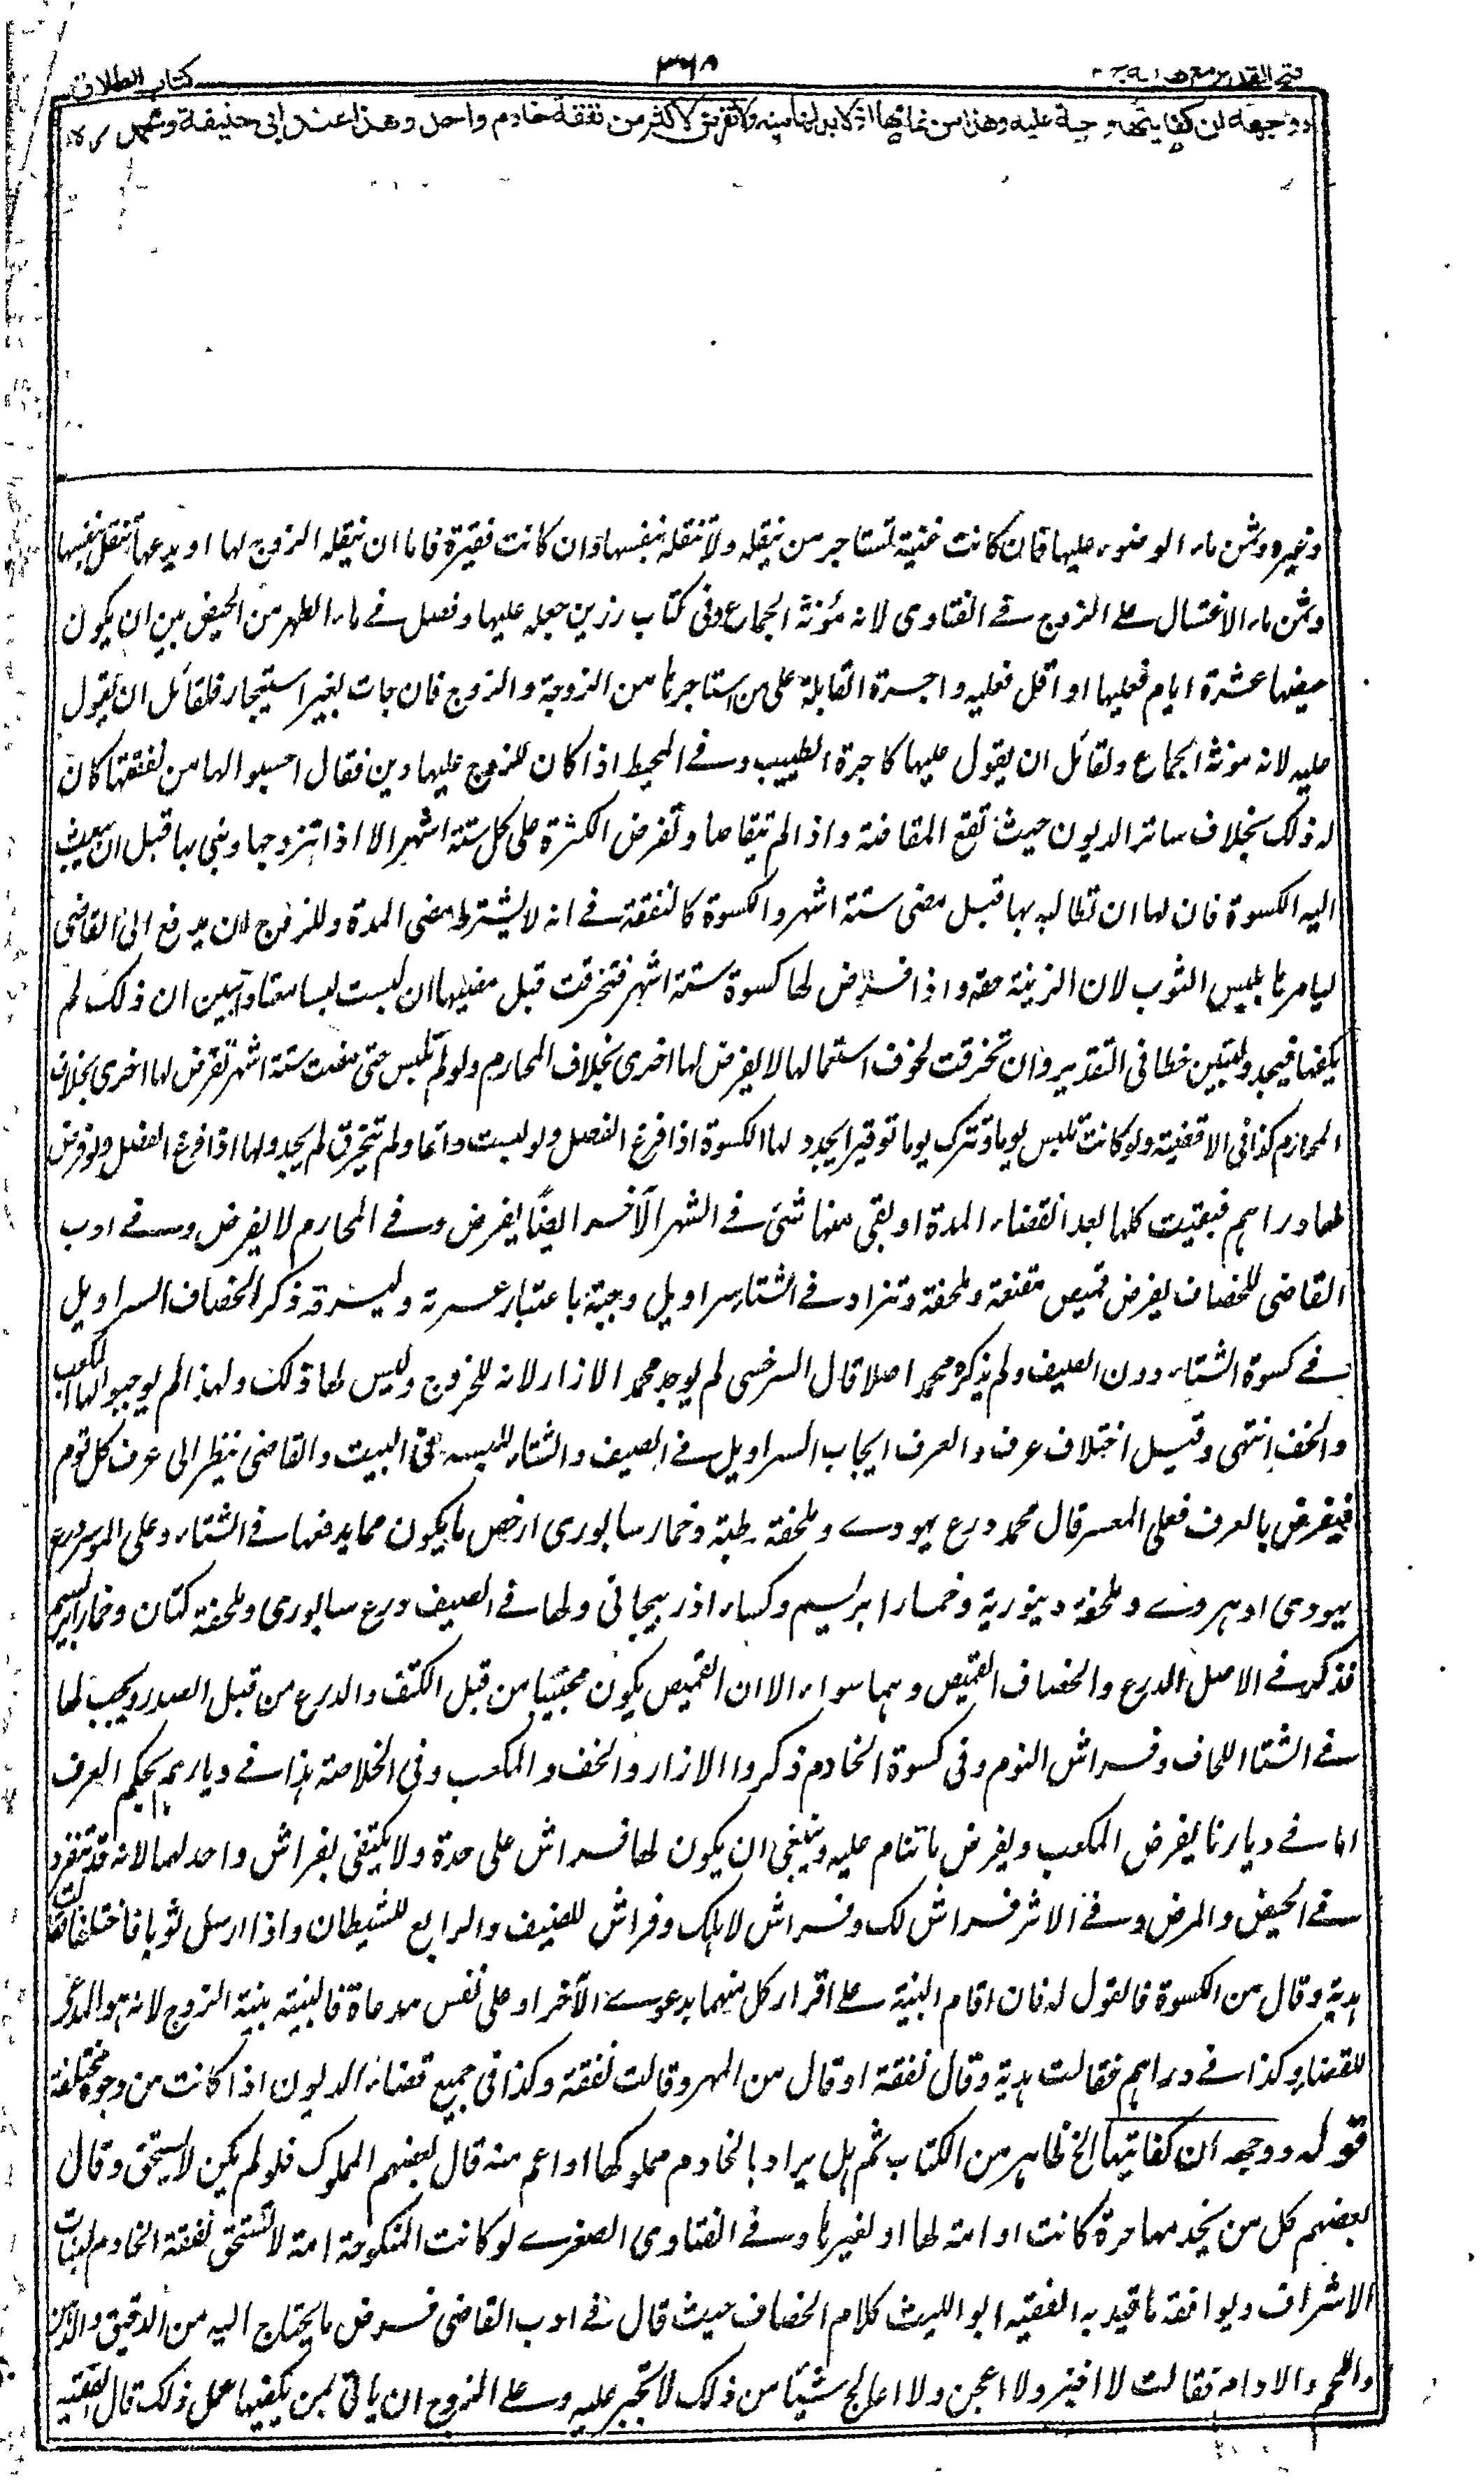 فتح القدير مع هدايه ج ٢
٣٦٨
كتاب الطلاق
ووجهه ان كفايتها واجبة عليه وهذا من تمامها اذ لا بد لها منه ولا تفرض لاكثر من نفقة خادم واحد وهذا عند ابي حنيفة ومحمد رح
وغيره وثمن ماء الوضوء عليها فان كانت غنية تستاجر من ينقله ولا تنقله بنفسها وان كانت فقيرة فاما ان ينقله الزوج لها او يدعها تنقل بنفسها
وثمن ماء الاغتسال على الزوج في الفتاوى لانه مؤنة الجماع وفي كتاب رزين جعله عليها وفصل في ماء الطهر من الحيض بين ان يكون
حيضها عشرة ايام فعليها او اقل فعليه واجرة القابلة على من استاجرها من الزوجة والزوج فان جاءت بغير استيجار فلقائل ان يقول
عليه لانه مونة الجماع ولقائل ان يقول عليها كاجرة الطبيب وفي المحيط اذا كان للزوج عليها دين فقال احسبوا لها من نفقتها كان
له ذلك بخلاف سائر الديون حيث تقع المقاصة واذا لم يتقاصا وتفرض الكسوة على كل ستة اشهر الا اذا تزوجها وبنى بها قبل ان يبعث
اليه الكسوة فان لها ان تطالبه بها قبل مضى ستة اشهر والكسوة كالنفقة في انه لا يشترط مضى المدة وللزوج ان يدفع الى القاضى
ليامرها بلبس الثوب لان الزينة حقه واذا فرض لها كسوة ستة اشهر فتخرقت قبل مضيها ان لبست لبسا معتادا تبين ان ذلك لم
يكفها فيجدد لتبين خطا في التقدير وان تخرقت لخرف استعمالها لا يفرض لها اخرى بخلاف المحارم ولو لم تلبس حتى مضت ستة اشهر تفرض لها اخرى بخلاف
المحارم كذا في الاقضية ولو كانت تلبس يوما وتترك يوما توقيرا يجدد لها الكسوة اذا فرغ الفصل ولو لبست دائما ولم يتخرق لم يجدد لها اذا فرغ الفصل ولو فرض
لها دراهم فبقيت كلها بعد انقضاء المدة او بقى منها شئ في الشهر الآخر ايضًا يفرض وفي المحارم لا يفرض وفي ادب
القاضى للخصاف يفرض قميص مقنعة وملحفة وتزاد في الشتاء سراويل وجبة باعتبار عسرته ويسره قد ذكر الخصاف السراويل
في كسوة الشتاء دون الصيف ولم يذكره محمد اصلا قال السرخسى لم يوجب محمد الازار لانه للخروج وليس لها ذلك ولهذا لم يوجبوا لها المكعب
والخف انتهى وقيل اختلاف عرف والعرف ايجاب السراويل في الصيف والشتاء للبسه في البيت والقاضى ينظر الى عرف كل قوم
فيفرض بالعرف فعلى المعسر قال محمد درع يهودى وملحفة رطبة وخمار سابورى ارخص ما يكون مما يدفئها في الشتاء وعلى الموسر درع
يهودى او هروى وملحفة دينورية وخمار ابريسم وكساء اذربيجانى ولها في الصيف درع سابورى وملحفة كتان وخمار ابريسم
فذكر في الاصل الدرع والخصاف القميص وهما سواء الا ان القميص يكون مجيبا من قبل الكتف والدرع من قبل الصدر ويجب لها
في الشتاء اللحاف وفراش النوم وفي كسوة الخادم ذكروا الازار والخف والمكعب وفي الخلاصة هذا في ديارهم بحكم العرف
اما في ديارنا يفرض المكعب ويفرض ما تنام عليه وينبغى ان يكون لها فراش على حدة ولا يكتفى بفراش واحد لهما لانه قد تنفرد
في الحيض والمرض وفي الاثر فراش لك وفراش لاهلك وفراش للضيف والرابع للشيطان واذا ارسل ثوبا فاختلفا فقالت
هدية وقال من الكسوة فالقول له فان اقام البينة على اقرار كل منهما بدعوى الآخر او على نفس مدعاه فالبينة بينة الزوج لانه هو المدعى
للقضاء وكذا في دراهم فقالت هدية وقال نفقة او قال من المهر وقالت نفقة وكذا في جميع قضاء الديون اذا كانت من وجوه مختلفة
قوله ووجهه ان كفايتها الخ ظاهر من الكتاب ثم هل يراد بالخادم مملوكها او اعم منه قال بعضهم المملوك فلو لم يكن لا يستحق وقال
بعضهم كل من يخدمها حرة كانت او امة لها او لغيرها وفي الفتاوى الصغرى لو كانت المنكوحة امة لا تستحق نفقة الخادم لبنات
الاشراف ويوافقه ما قيد به الفقيه ابو الليث كلام الخصاف حيث قال في ادب القاضى فرض ما يحتاج اليه من الدقيق والدهن
واللحم والادام فقالت لا اخبز ولا اعجن ولا اعالج شيئا من ذلك لا تجبر عليه وعلى الزوج ان ياتى بمن يكفيها عمل ذلك قال الفقيه